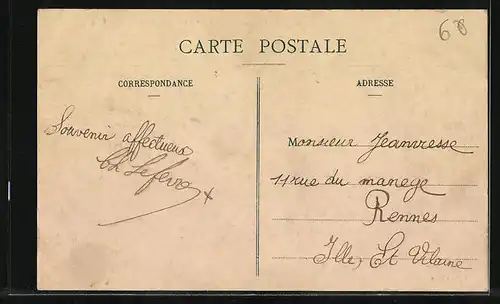 68
CARTE POSTALE
CORRESPONDANCE
Souvenir affectueux
Ch Lefevre
ADRESSE
Monsieur Jeanvresse
11 rue du manege
Rennes
Ille, Et Vilaine